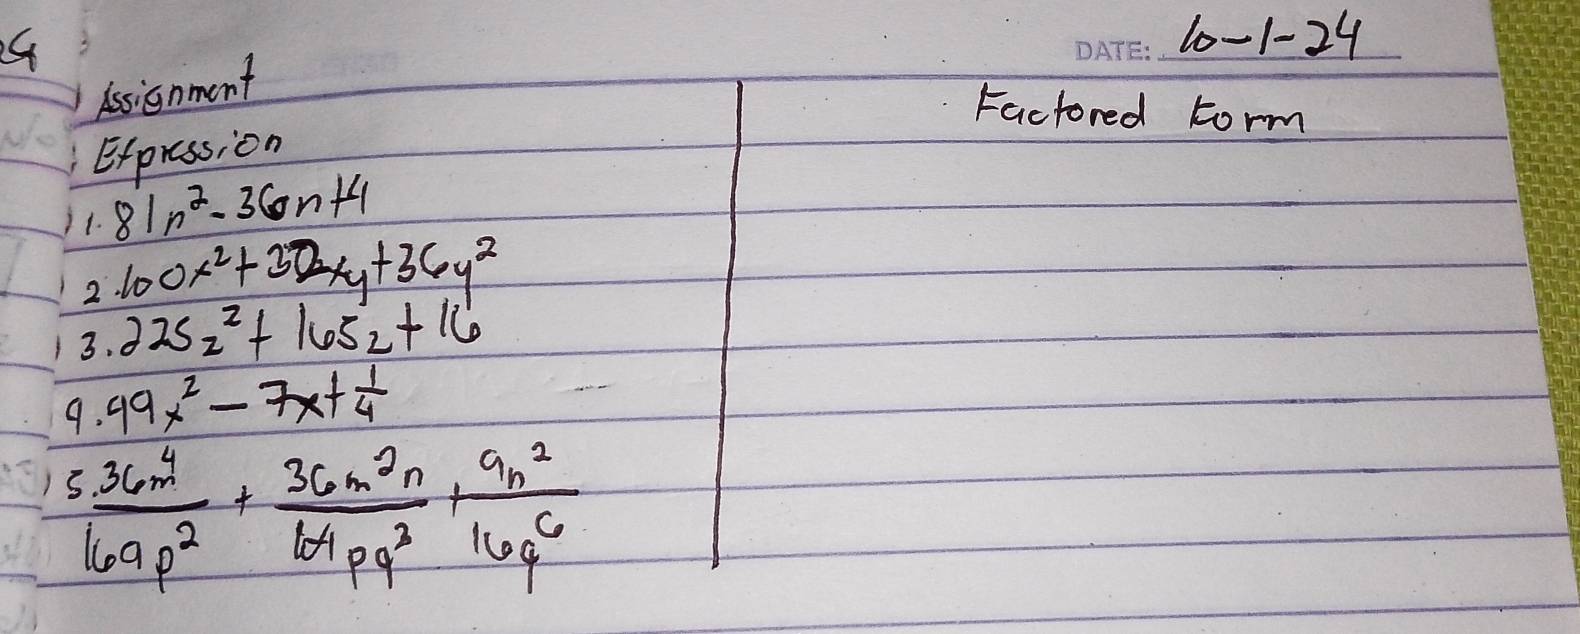 DATE: 10-1-24
Assignment
Expression
Factored Form
1. 81n² - 36n + 4
2. 100x² + 30xy + 36y²
3. 225z² + 165z + 16
9. 49x² - 7x + 1/4
5. 36m⁴/169p² + 36m²n/ pq³ + 9n²/16q⁶